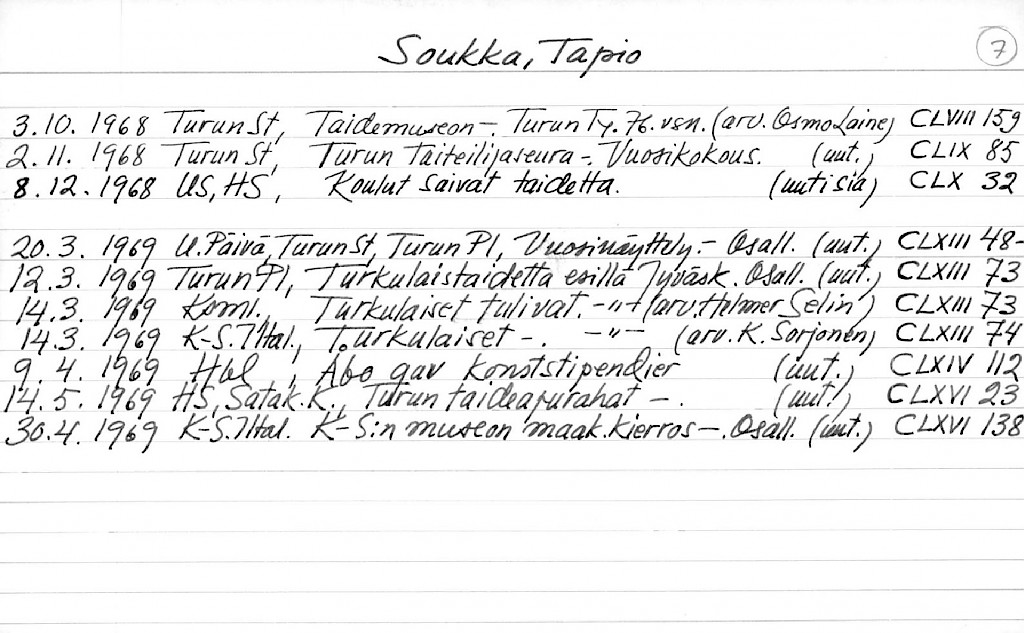 Soukka, Tapio
7
3.10. 1968 Turun St, Taidemuseon -. Turun Ty. 76. vsn. (arv. Osmo Laine) CLVIII 159
2.11. 1968 Turun St, Turun Taiteilijaseura -. Vuosikokous. (uut.) CLIX 85
8.12. 1968 US, HS, Koulut saivat taidetta. (uutisia) CLX 32
20.3. 1969 U. Päivä, Turun St, Turun Pl, Vuosinäyttely. - Osall. (uut.) CLXIII 48-
12.3. 1969 Turun Pl, Turkulaistaidetta esillä Jyväsk. Osall. (uut.) CLXIII 73
14.3. 1969 Koml. Turkulaiset tulivat. -"- (arv. Helmer Selin) CLXIII 73
14.3. 1969 K-S. Iltal., Turkulaiset -. -"- (arv. K. Sorjonen) CLXIII 74
9. 4. 1969 Hbl, Åbo gav konststipendier (uut.) CLXIV 112
14. 5. 1969 HS, Satak. K., Turun taideapurahat -. (uut.) CLXVI 23
30.4. 1969 K-S. Iltal. K-S:n museon maak. kierros -. Osall. (uut.) CLXVI 138